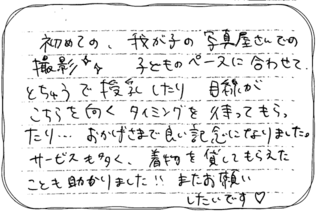 初めての、我が子の写真屋さんでの
撮影✨ 子どものペースに合わせて
とちゅうで授乳したり 目線が
こちらを向くタイミングを待ってもらっ
たり… おかげさまで良い記念になりました。
サービスも多く、着物を貸してもらえた
ことも助かりました!! またお願い
したいです♡